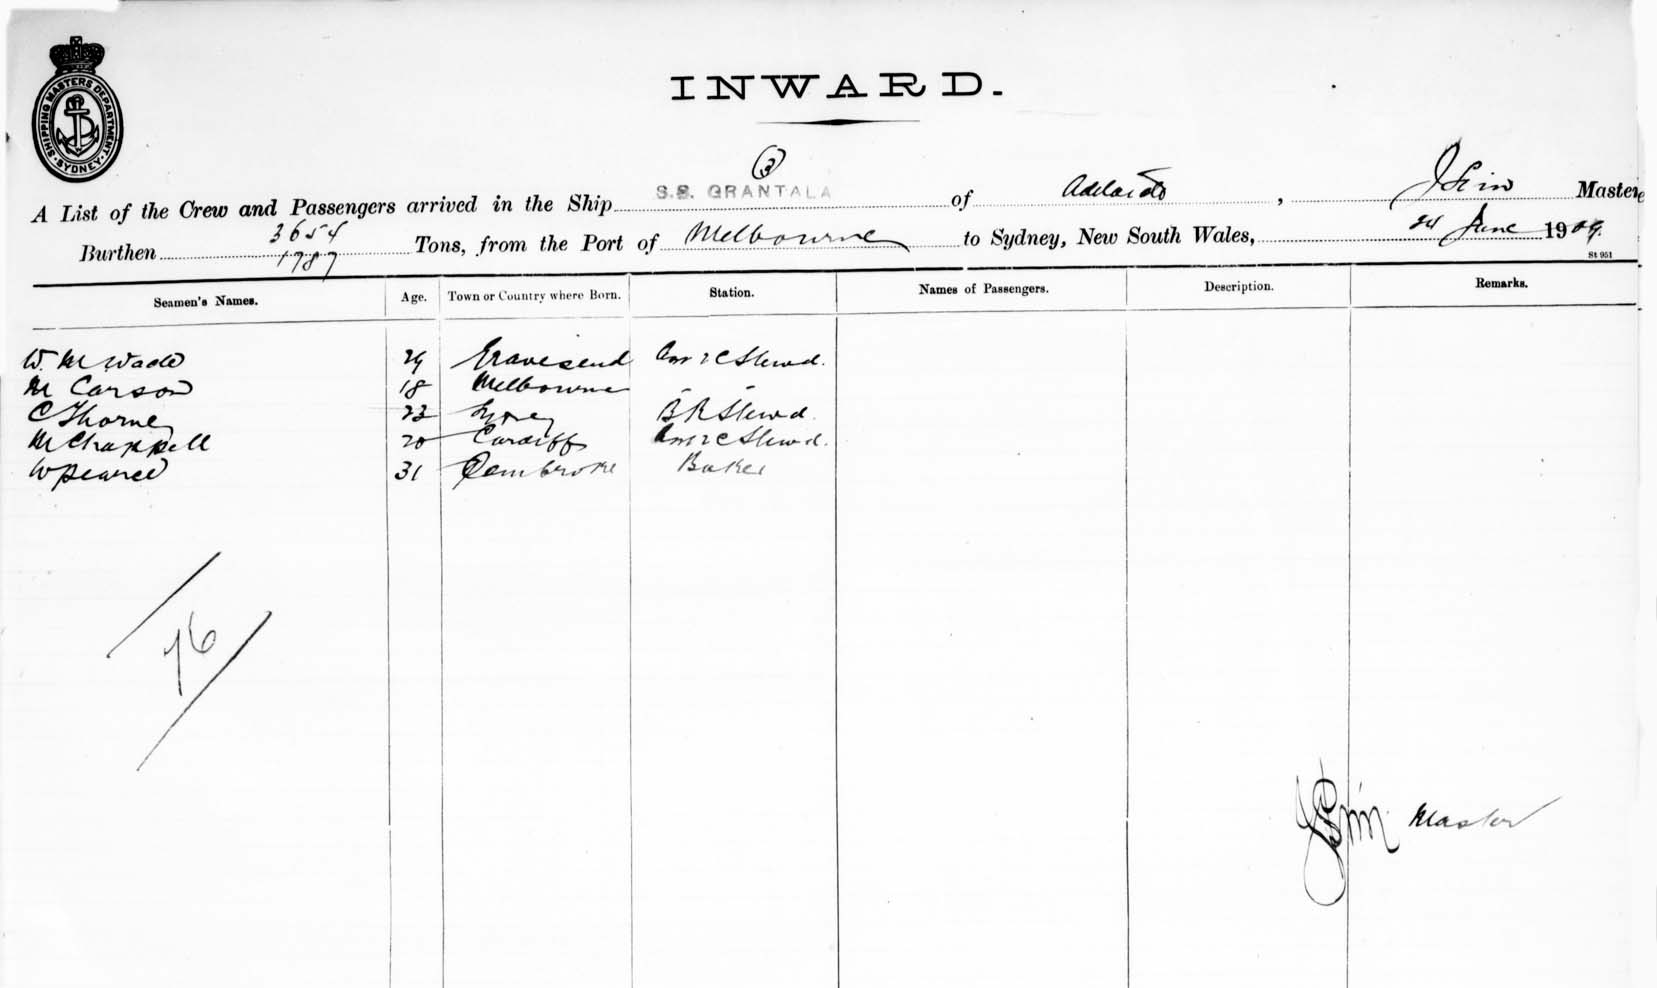 SHIPPING MASTERS DEPARTMENT. SYDNEY.
INWARD.
3
A List of the Crew and Passengers arrived in the Ship S.S. GRANTALA of Adelaide, Master
Burthen 3654 Tons, from the Port of Melbourne to Sydney, New South Wales, 24 June 1909.
1787
St 951
Seamen's Names. Age. Town or Country where Born. Station. Names of Passengers. Description. Remarks.
W. M Wade 29 Gravesend Stewd.
M Carson 18 Melbourne " "
C Thorne 23 Sydney B R Stewd
M Chappell 20 Cardiff Stewd.
W Pearce 31 Pembroke Baker
76
Master